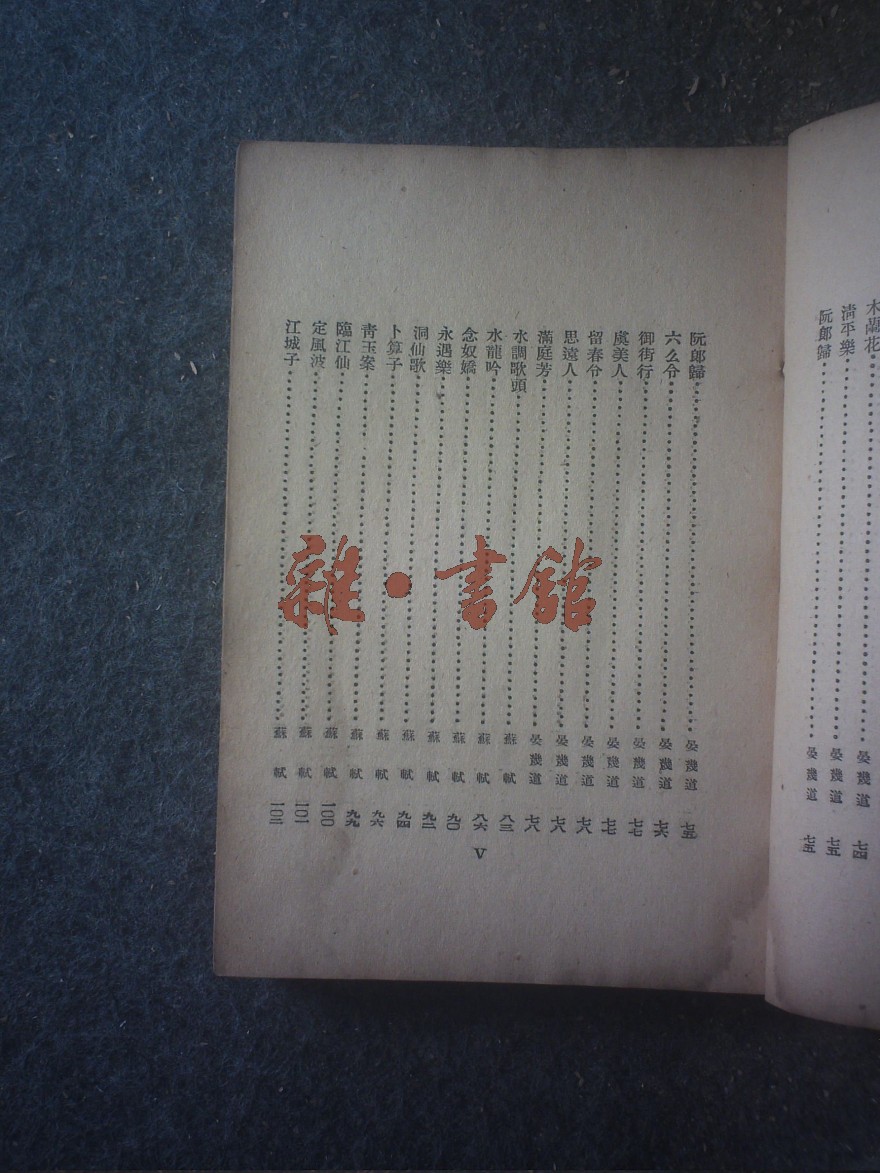 木蘭花 晏幾道 七四
清平樂 晏幾道 七五
阮郎歸 晏幾道 七五
阮郎歸 晏幾道 七五
六么令 晏幾道 七六
御街行 晏幾道 七七
虞美人 晏幾道 七七
留春令 晏幾道 七八
思遠人 晏幾道 七八
滿庭芳 晏幾道 七八
水調歌頭 蘇軾 八三
水龍吟 蘇軾 八六
念奴嬌 蘇軾 九〇
永遇樂 蘇軾 九二
洞仙歌 蘇軾 九四
卜算子 蘇軾 九六
青玉案 蘇軾 九九
臨江仙 蘇軾 一〇〇
定風波 蘇軾 一〇一
江城子 蘇軾
V
雜·書館